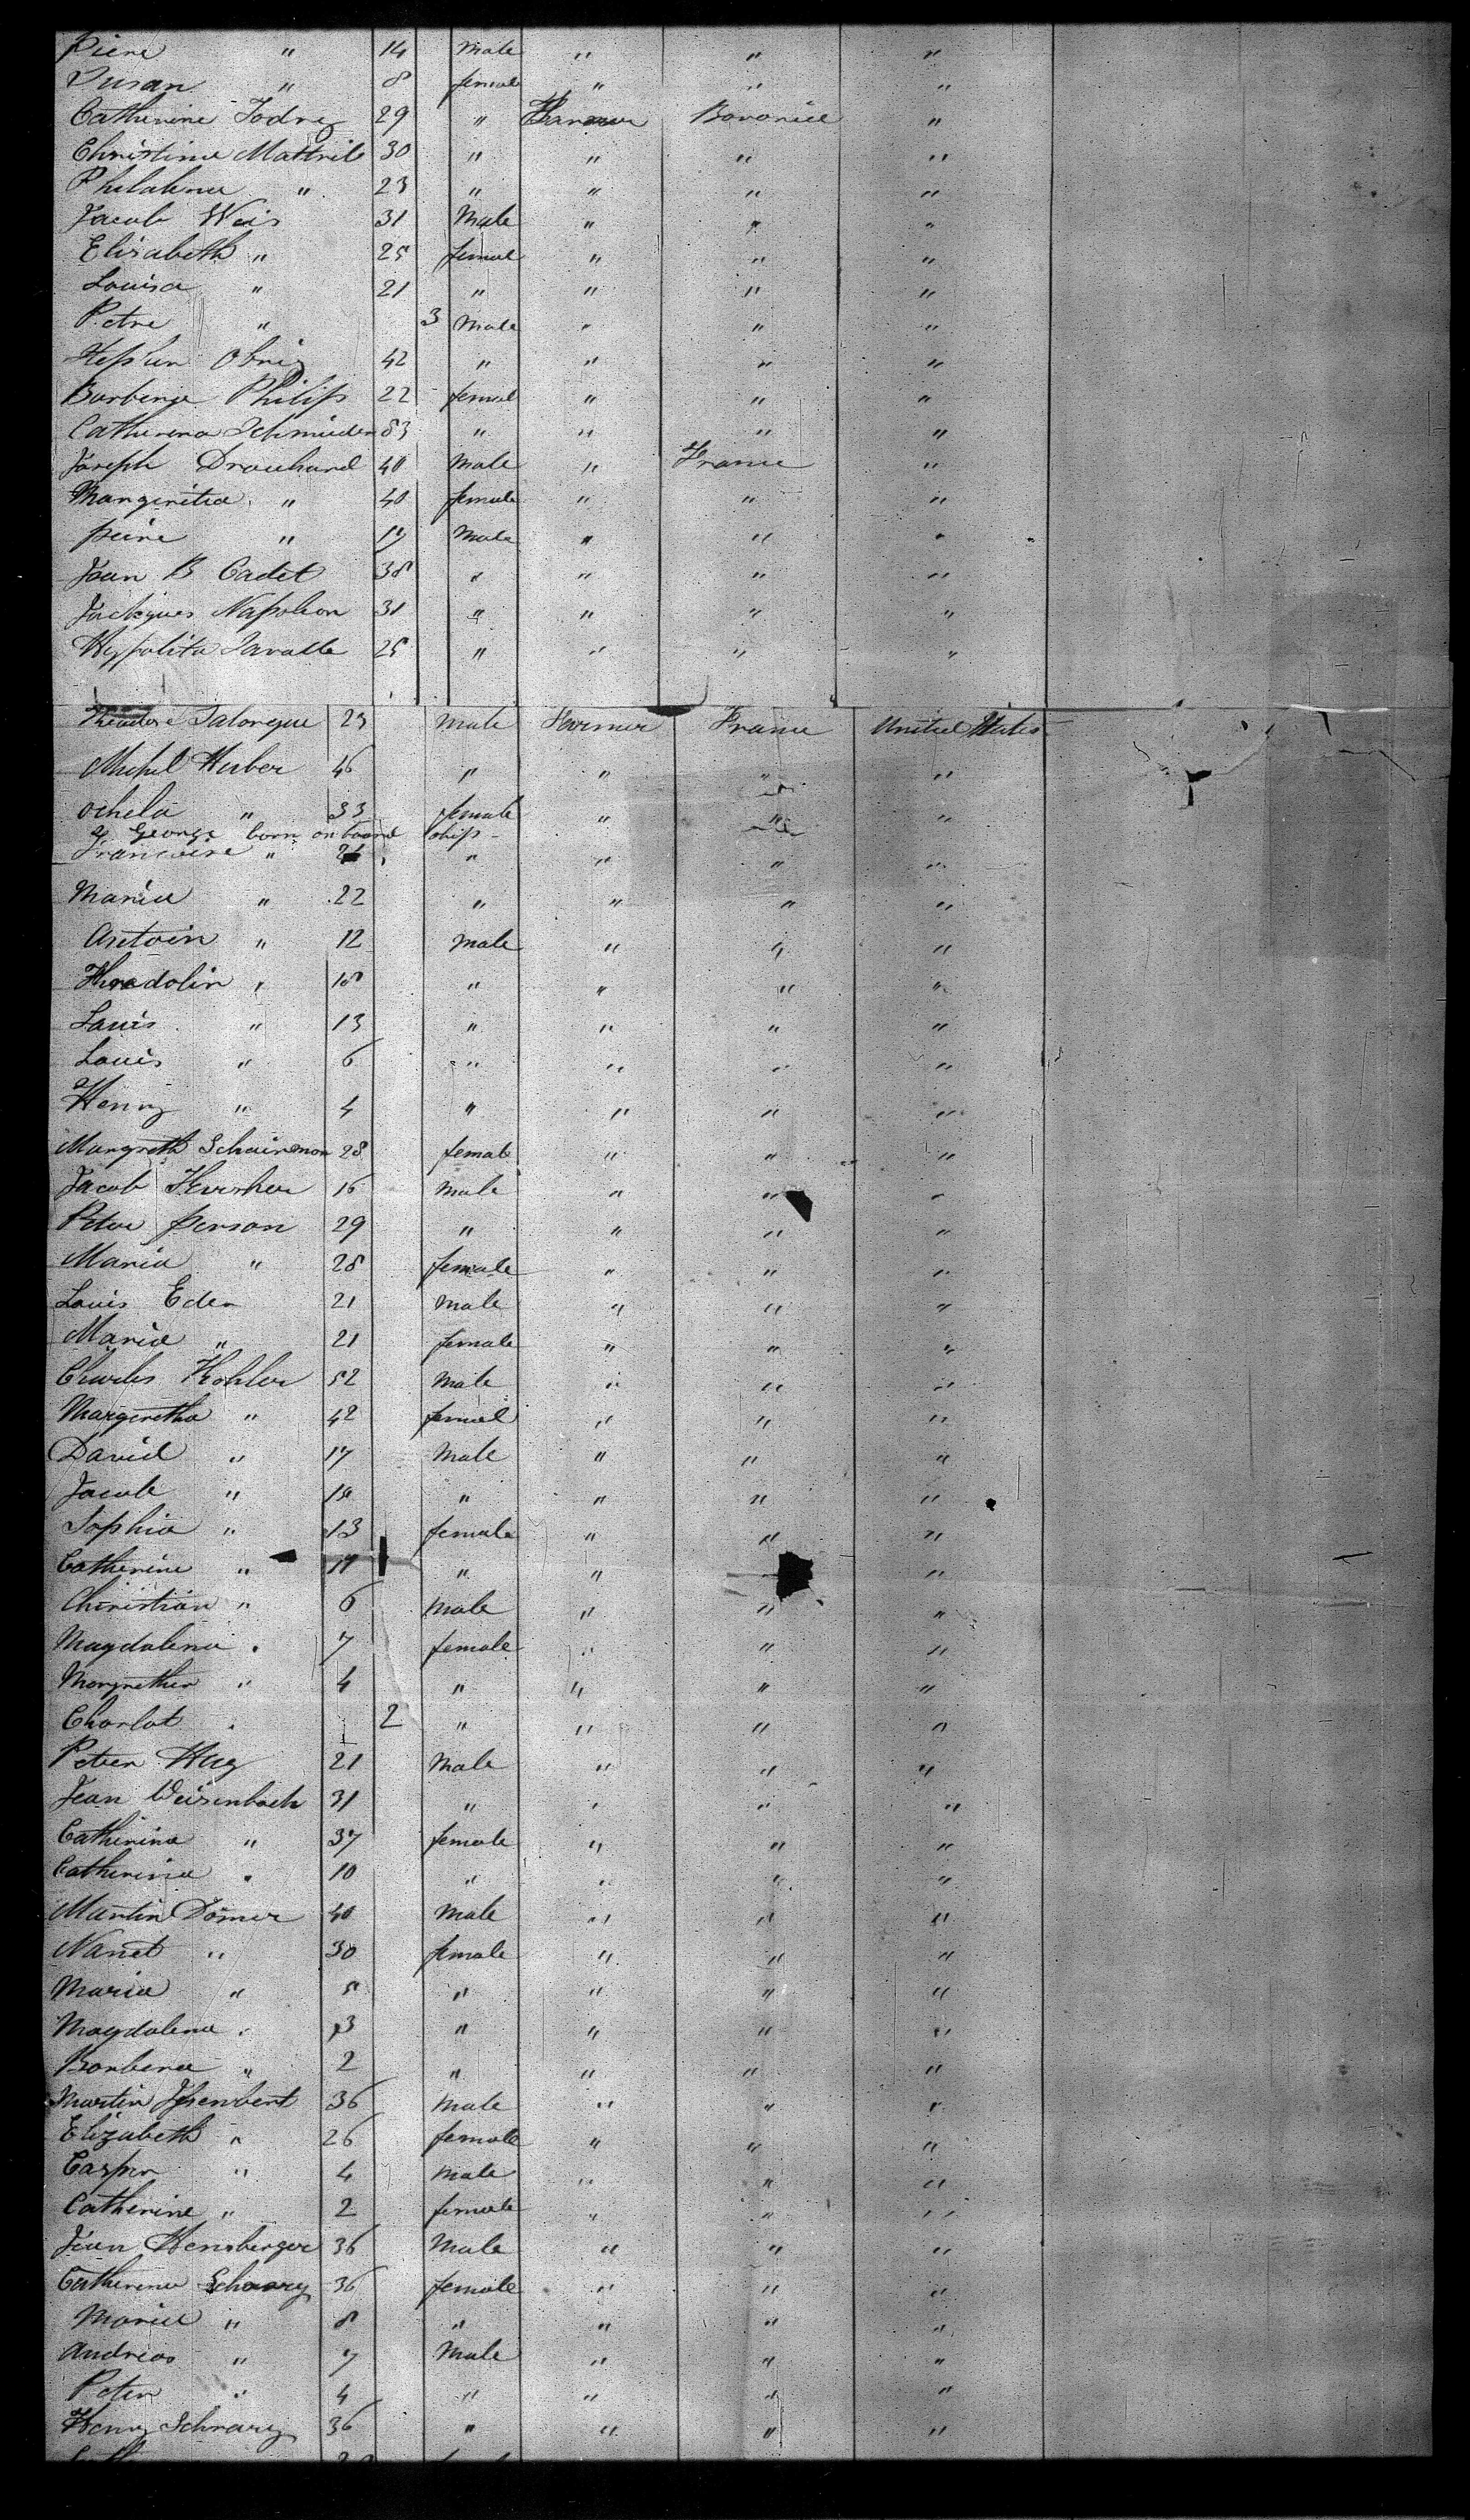 Piere " 14 male " " "
Susan " 8 female " " "
Catherine 29 " Farmer Bavaria "
Christine 30 " " " "
" 23 " " " "
Jacob Weis 31 Male " " "
Elisabeth " 25 femal " " "
Louisa " 21 " " " "
Petre " 3 male " " "
42 " " " "
Philip 22 femal " " "
" " " "
Joseph Drouhard 40 male " France "
Margeritta " 40 female " " "
peire " 17 male " " "
Jean B Cadet 38 " " " "
Jacques Napoleon 31 " " " "
Hyppolita Lavalle 25 " " " "
Theadore Lalorgue 23 male Farmer France United States
Michel Huber 46 " " " "
" 33 female " " "
George born on board ship
Francoise " " " " "
Maria " 22 " " " "
Antoin " 12 male " " "
" 18 " " " "
Louis " 13 " " " "
Louis " 6 " " " "
Henry " 4 " " " "
Margreth 28 female " " "
Jacob 16 male " " "
Peter person 29 " " " "
Maria " 28 female " " "
Louis Eder 21 male " " "
Maria " 21 female " " "
Charles Kohler 52 male " " "
Margeretha " 42 femal " " "
David " 17 male " " "
Jacob " " " " "
Sophia " 13 female " " "
Catherine " " " " "
Christian " 6 male " " "
Magdalena " 7 female " " "
Margretha " 4 " " " "
Charlot " 2 " " " "
Peter Hug 21 male " " "
Jean Weisenbach 31 " " " "
Catherina " 37 female " " "
Catherina " 10 " " " "
Martin Domer 40 male " " "
Nanet " 30 female " " "
Maria " " " " "
Magdalena " 3 " " " "
Barbera " 2 " " " "
Martin 36 male " " "
Elizabeth " 26 female " " "
Casper " 4 male " " "
Catherine " 2 female " " "
Jean Hensberger 36 male " " "
Catherena 36 female " " "
Maria " 8 " " " "
Andreas " 7 male " " "
Peter " 4 " " " "
Henry 36 " " " "